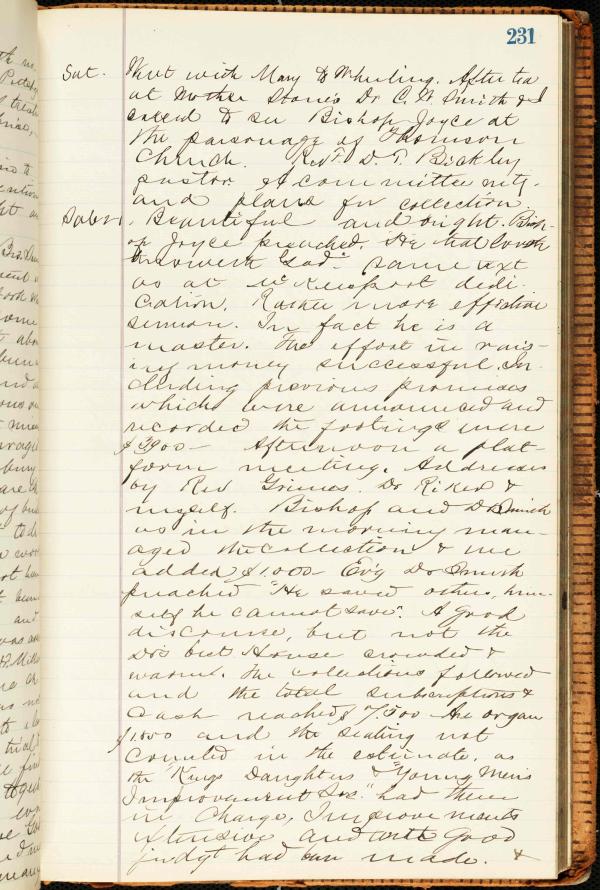 231
Sat. Went with Mary to Wheeling. After tea
at Mother Stone's Dr. C. W. Smith & I
called to see Bishop Joyce at
the parsonage of Thomson
Church. Revd. D. T. Bickley
pastor. A committee mtg.
and plans for collection.
Sabbth. Beautiful and bright. Bish-
op Joyce preached. "He that loveth
knoweth God." Same text
as at McKeesport dedi-
cation. Rather more effective
sermon. In fact he is a
master. The effort in rais-
ing money successful. In-
cluding previous promises
which were announced and
recorded the footings were
$3900— Afternoon a plat-
form meeting. Addresses
by Rev Grimes. Dr Riker &
myself. Bishop and Dr Smith
as in the morning man-
aged the collection & we
added $1.000— Ev'g Dr Smith
preached "He saved others, him-
self he cannot save". A good
discourse, but not the
Drs best House crowded &
warm. The collections followed
and the total subscriptions &
cash reached $7.500— The organ
$1.000 and the seating not
counted in the estimate, as
the "Kings Daughters & "Young Men's
Improvement Soc." had these
in charge, Improvements
extensive and with good
judgt had been made. &